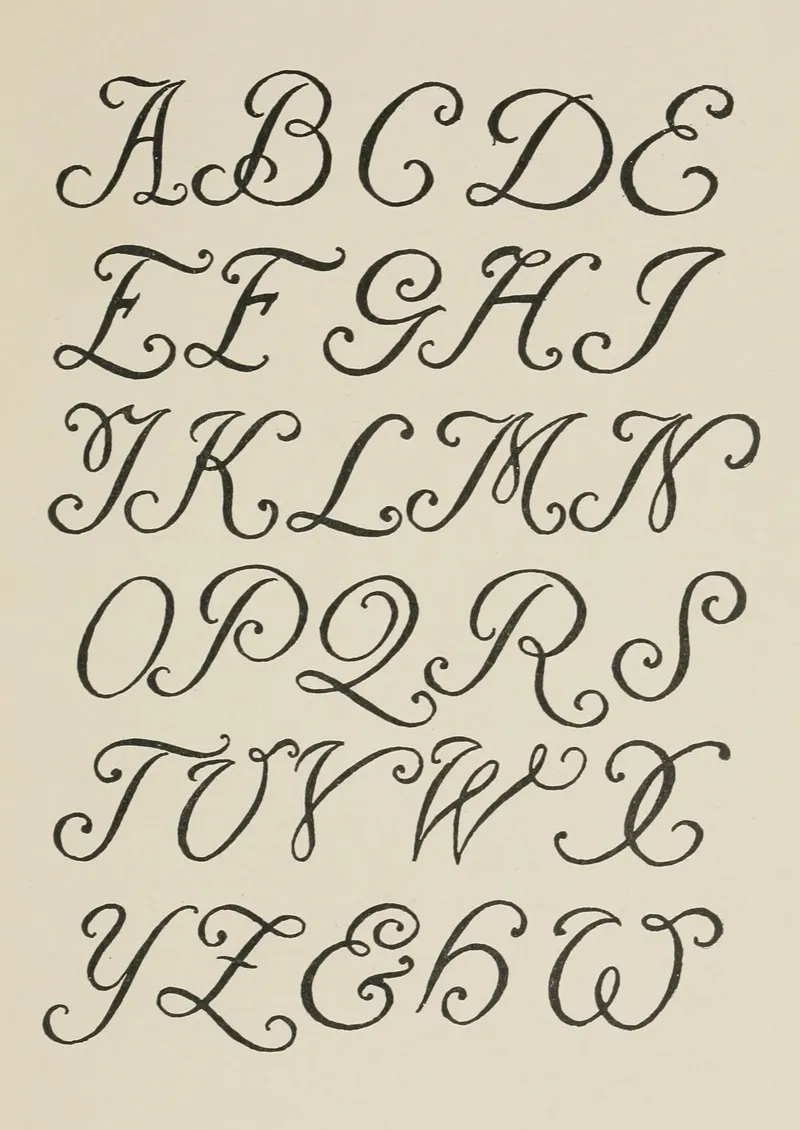 A B C D E
E F G H I
J K L M N
O P Q R S
T U V W X
Y Z & h W